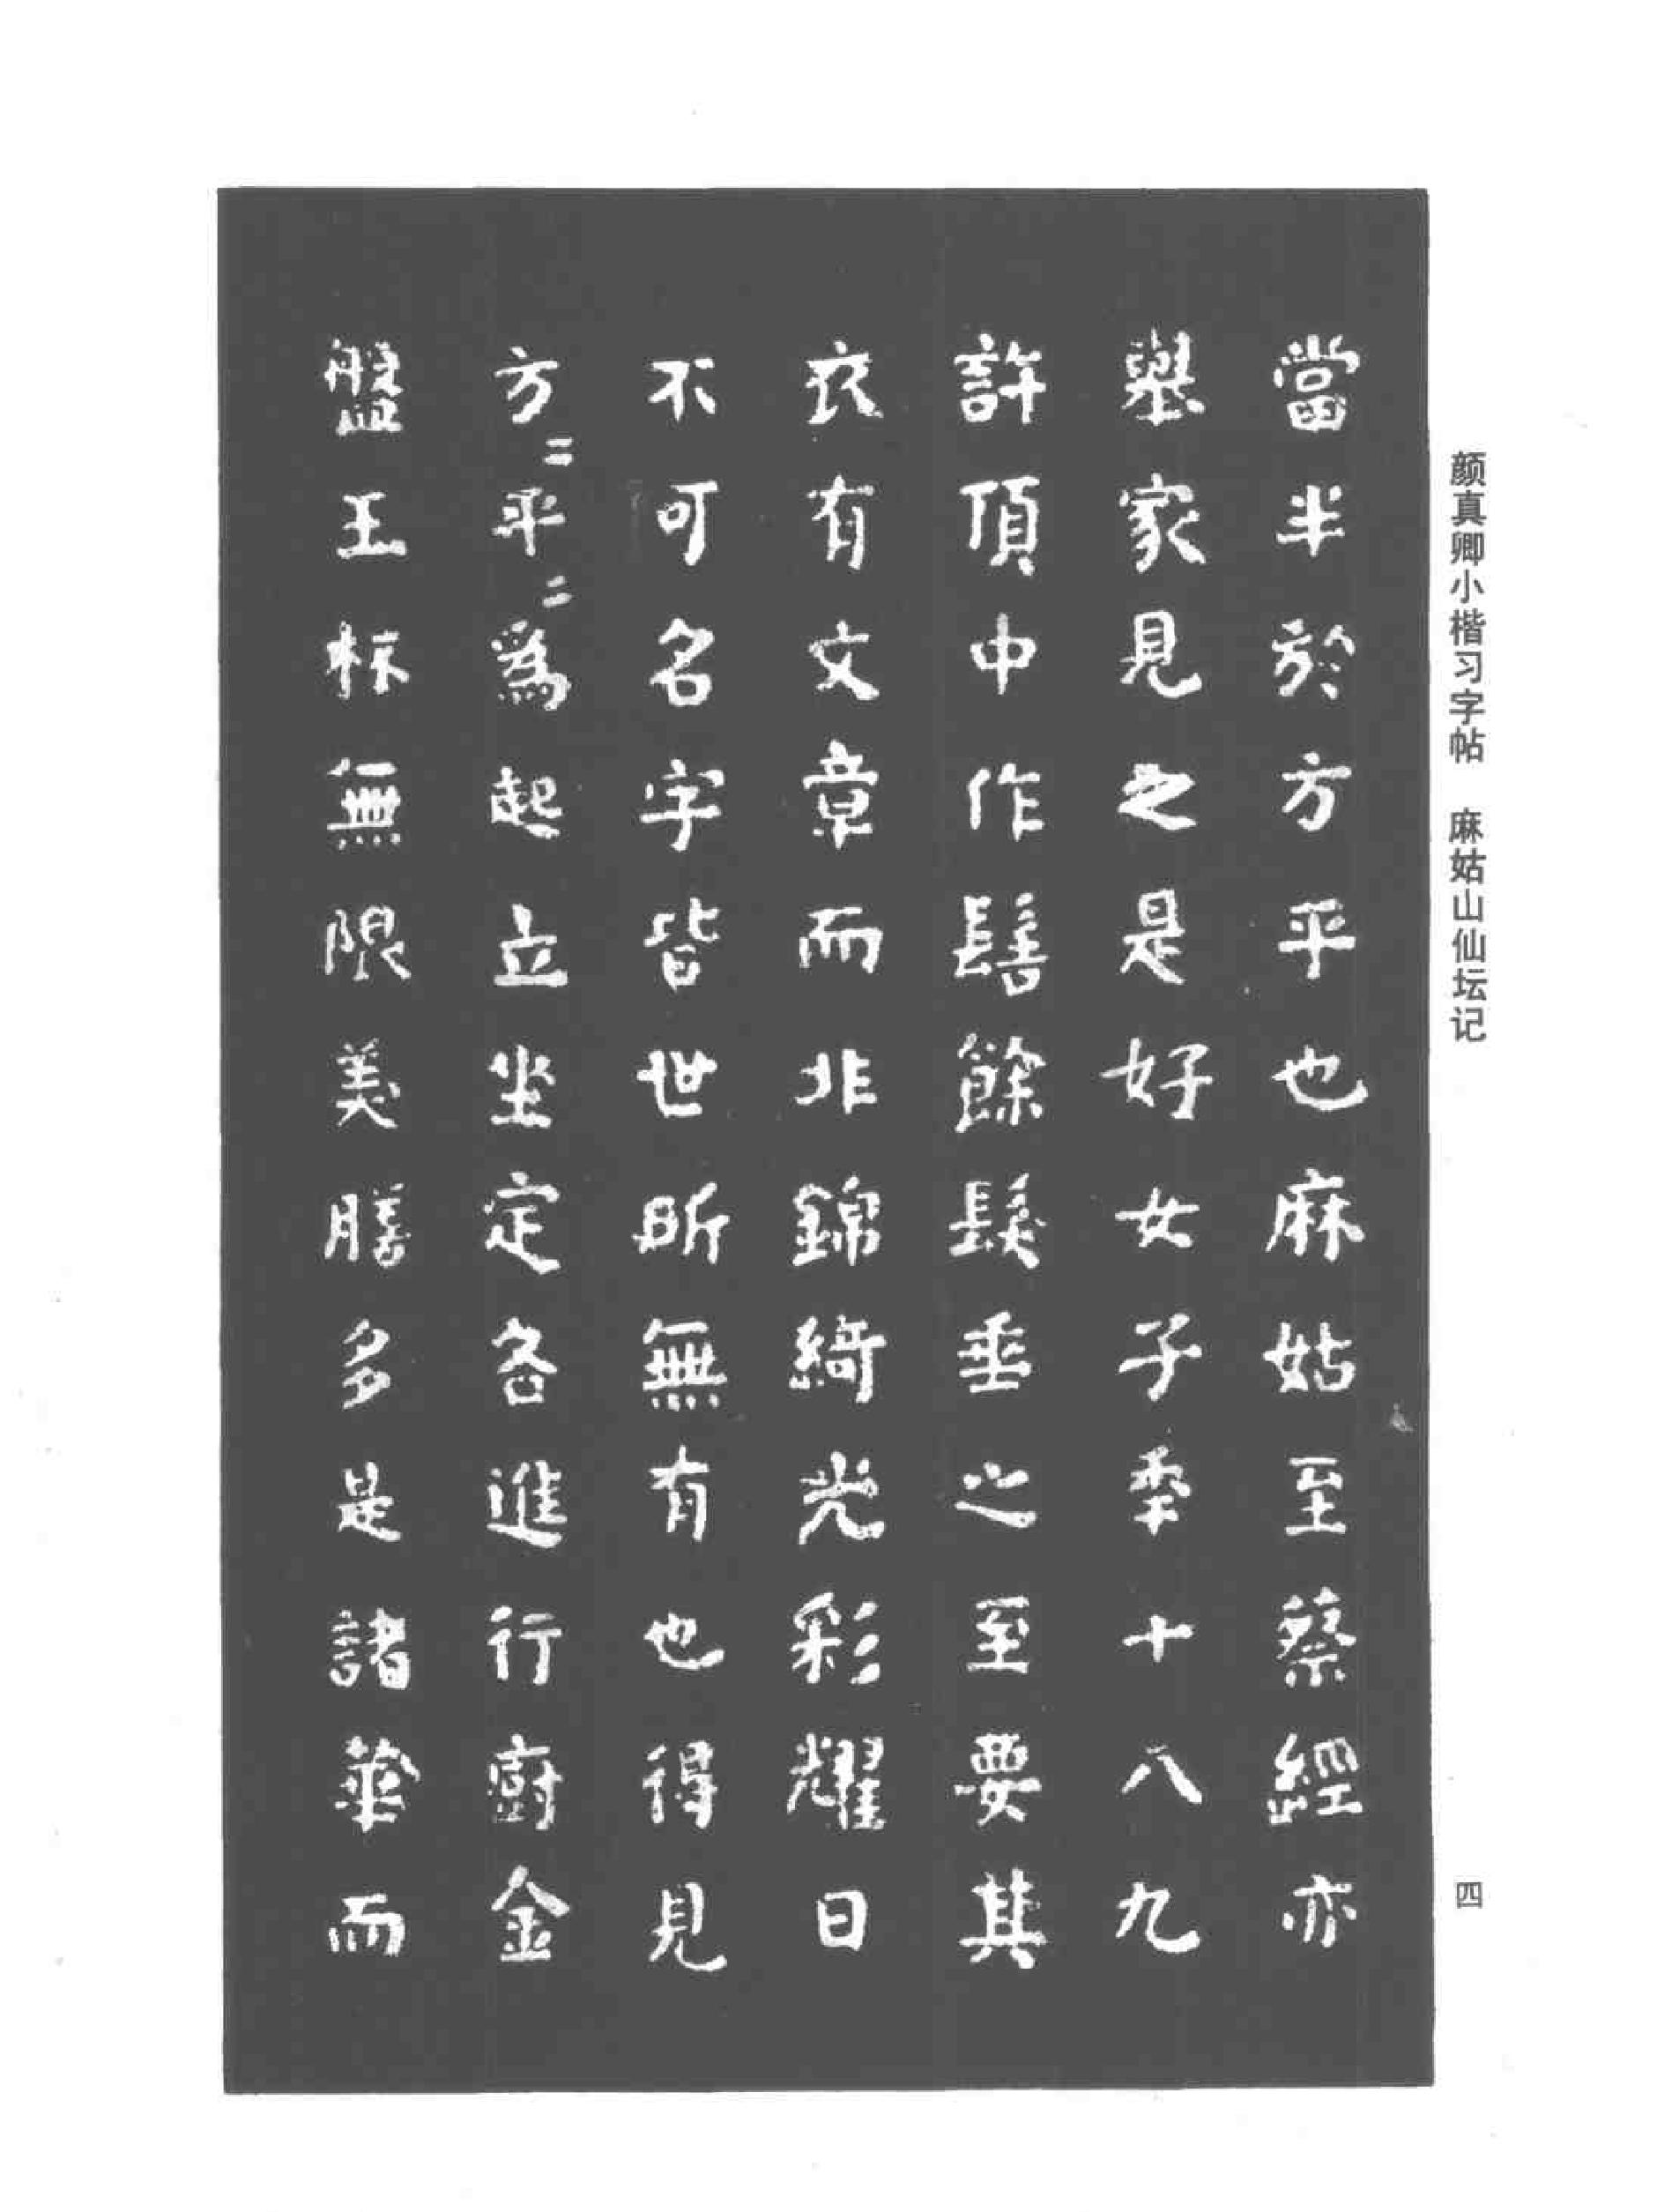 當半於方平也麻姑至蔡經亦
舉家見之是好女子年十八九
許頂中作髻餘髮垂之至要其
衣有文章而非錦綺光彩耀日
不可名字皆世所無有也得見
方〻平〻爲起立坐定各進行廚金
盤玉杯無限美膳多是諸華而
颜真卿小楷习字帖 麻姑山仙坛记
四